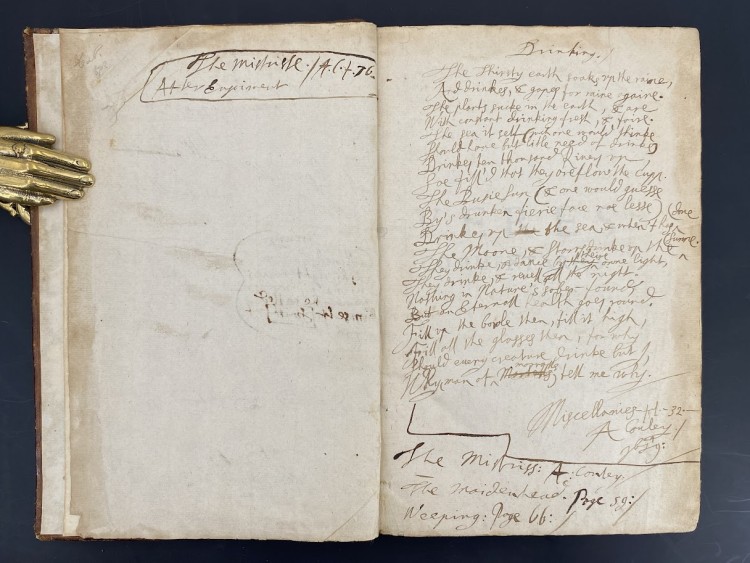 The Mistrisse./ A.C.f.76.
After Enjoiment
Drinking./
The Thirsty earth soakes up the raine,
And drinkes, & gapes for raine againe.
The plants sucke in the earth, & are
With constant drinking fresh, & faire.
The sea it self (which one would thinke
Should have but little need of drinke)
Drinkes ten thousand Rivers up,
Soe fill'd that they oreflow the cupp.
The Busie sun (& one would guesse
By's drunken fierie face noe lesse)
Drinkes up the sea, & when that has done
The Moone, & Starrs drinke up the Sunne.
They drinke, & dance by their owne light,
They drinke, & revell all the night.
Nothing in Nature's sober found
But an Eternall health goes round.
Fill up the bowle then, fill it high,
Fill all the glasses then, for why
Should every creature drinke but I,
Why man of morralls, tell me why.
Miscellanies f. 32
A Couley./
The Mistriss: A: Couley.
The Maidenhead. Page 59:/
Weeping: Page 66:/